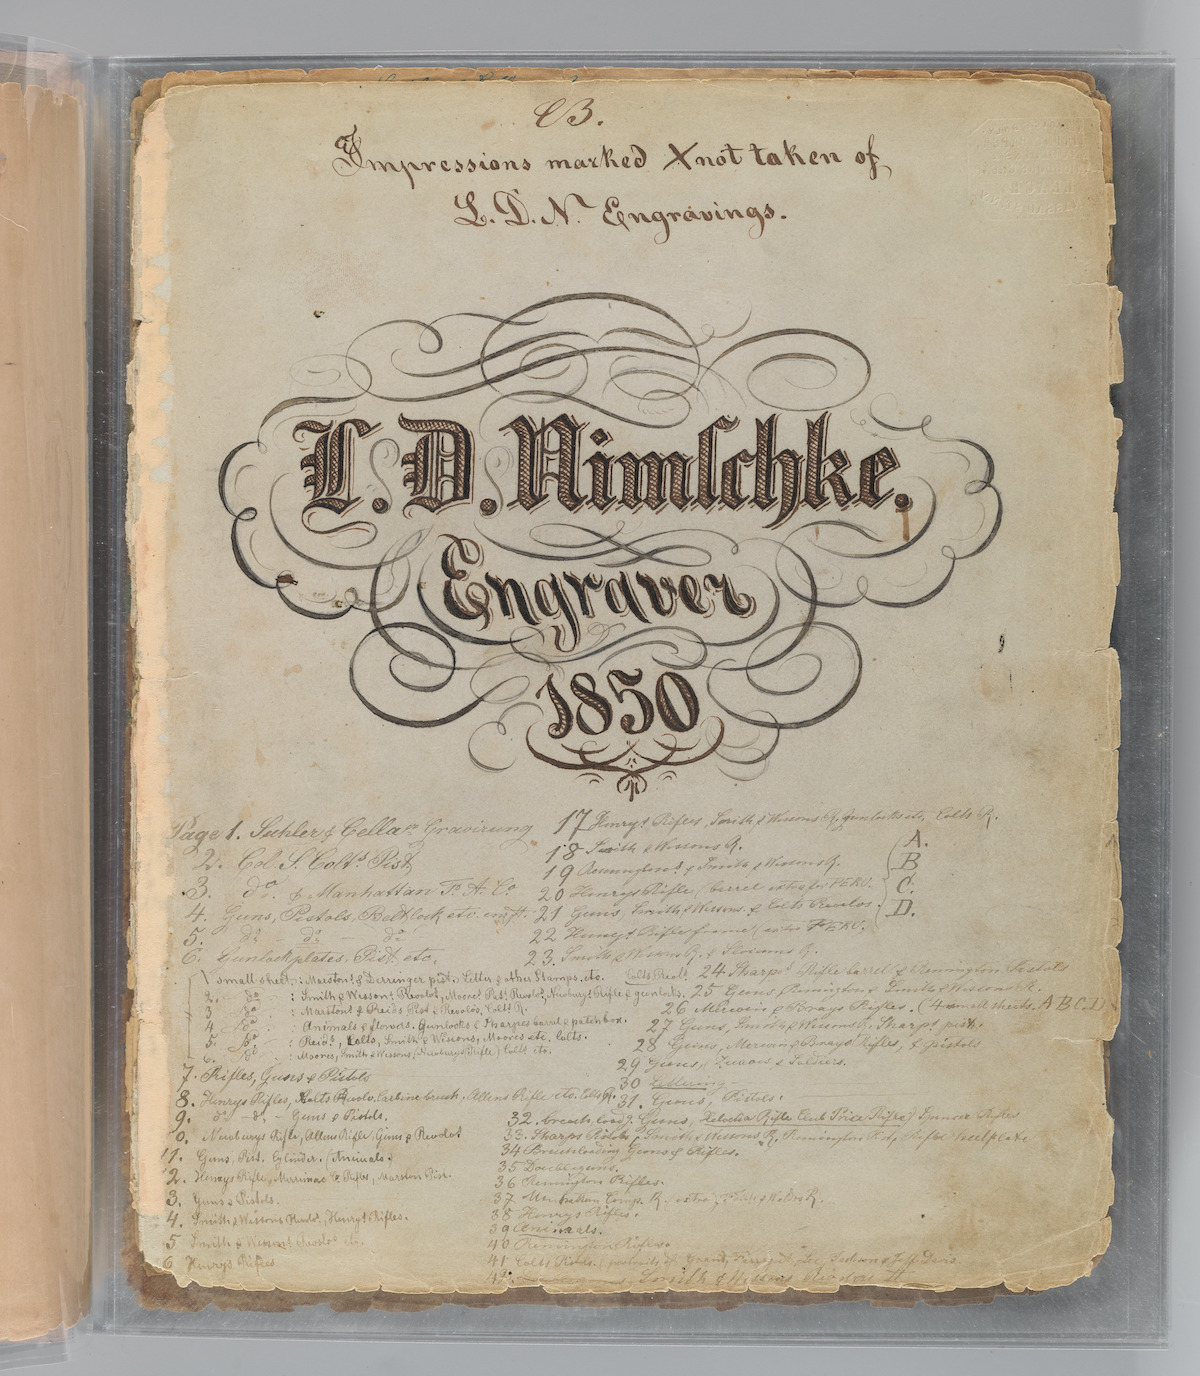 B.
Impressions marked X not taken of
L. D. N. Engravings.
L. D. Nimſchke.
Engraver
1850
Page 1. & Cellar Gravirung
2. Col. S. Colts Pist.
3. do. & Manhattan F. A. Co
4. Guns, Pistols, Beltlock etc.
5. do do do
6. Gunlockplates, Pist. etc.
1 small sheet: Marstons & Derringer pist. Letter & other Stamps. etc. Colts Revol.
2. do : Smith & Wessons Revolvs, Moores Pat. Revolvs, Newburys Rifle & gunlocks.
3 do : Marstons & Reids Pist & Revolvs, Colts R.
4 do : Animals & flowers. Gunlocks & Sharpes barrel & patchbox.
5. do : Reids, Colts, Smith & Wessons, Moores etc. Colts.
6. do : Moores, Smith & Wessons (Newburys Rifle) Colts etc.
7. Rifles, Guns & Pistols
8. Henrys Rifles, Colts Revolv. Carbine breech, Allens Rifle etc. Colts R.
9. do - do. - Guns & Pistols.
0. Newburys Rifle, Allens Rifle, Guns & Revolvs
11. Guns, Pist. Cylinder. (Animals.)
2. Henrys Rifle, Merrimac & Rifles, Marston Pist.
3. Guns & Pistols.
4. Smith & Wessons Revolv., Henrys Rifles.
5 Smith & Wessons Revolvs etc.
6 Henrys Rifles
17 Henrys Rifles, Smith & Wessons R, gunlocks etc. Colts R.
18 Smith & Wessons R.
19 Remingtons & Smith & Wessons R.
20 Henrys Rifle, (barrel extra for PERU.
21 Guns, Smith & Wessons & Colts Revolvs.
22 Henrys Rifle frame (extra PERU.
A.
B
C.
D.
23. Smith & Wessons R. & Slocums R.
24 Sharps Rifle barrel & Remington Pistols
25 Guns, Remingtons & Smith & Wessons R.
26 Merwin & Brays Rifles. (4 small sheets. A B C D)
27 Guns, Smith & Wessons R. Sharps pist.
28 Guns, Merwin & Brays Rifles, & pistols
29 Guns, Zuaves & Soldiers.
30 Lettering.
31. Guns, Pistols.
32. breech load. Guns, Rifle Club Prize Rifle) Rifles
33. Sharps Pistols & Smith & Wessons R, Remington Rifle heelplate
34 Breechloading Guns & Rifles.
35 Doubleguns.
36 Remington Rifles.
37 Comp. R. extra
38 Henrys Rifles.
39 Animals.
40 Remington Rifles.
41 Colts Pistols. (portraits of Grant, Farragut Lee, Jackson & J. Davis.
42. Smith & Wessons Revolvs